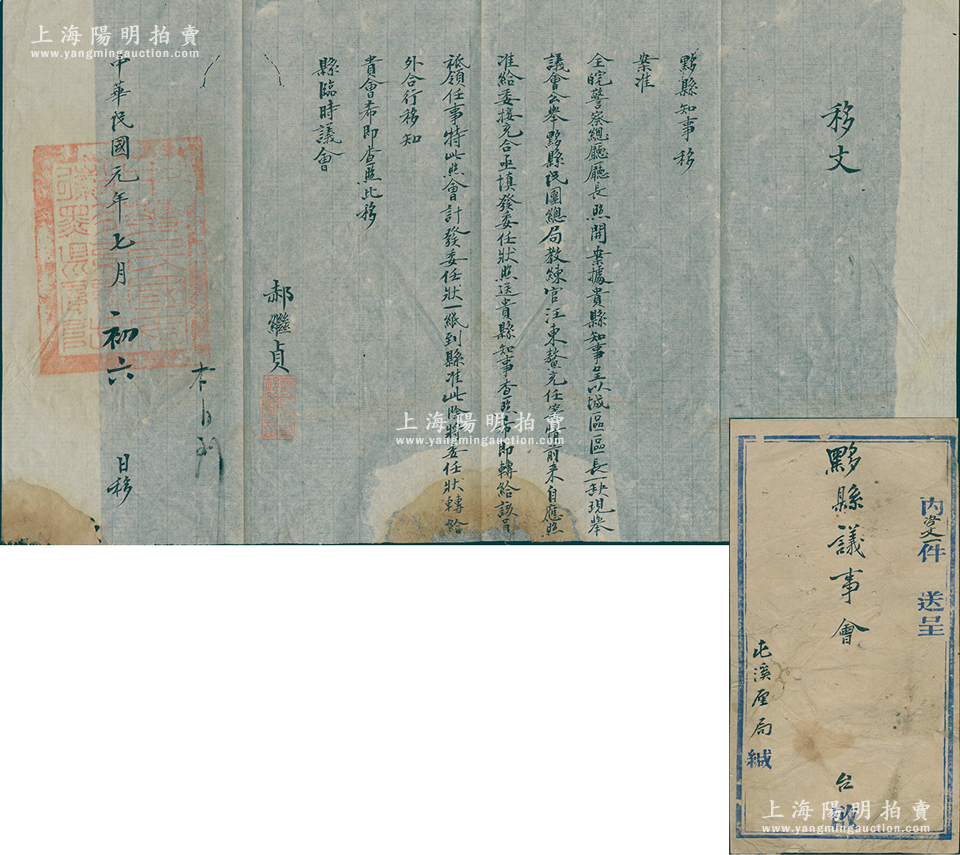 移文
黟縣知事 移
案准
全皖警察總廳廳長照開案據貴縣知事呈以城區區長一缺現舉
議會公舉黟縣民團總局教練官汪東鰲充任等情前來自應照
准給委接充合亟填發委任狀照送貴縣知事查照希即轉給該員
祗領任事特此照會計發委任狀一紙到縣准此除將委任狀轉給
外合行移知
貴會希即查照此移
縣臨時議會
郝繼貞
中華民國元年七月初六日移
內文一件 送呈
黟縣議事會 台啟
屯溪厘局緘
上海陽明拍賣
www.yangmingauction.com
上海陽明拍賣
www.yangmingauction.com
上海陽明拍賣
www.yangmingauction.com
上海陽明拍賣
www.yangmingauction.com